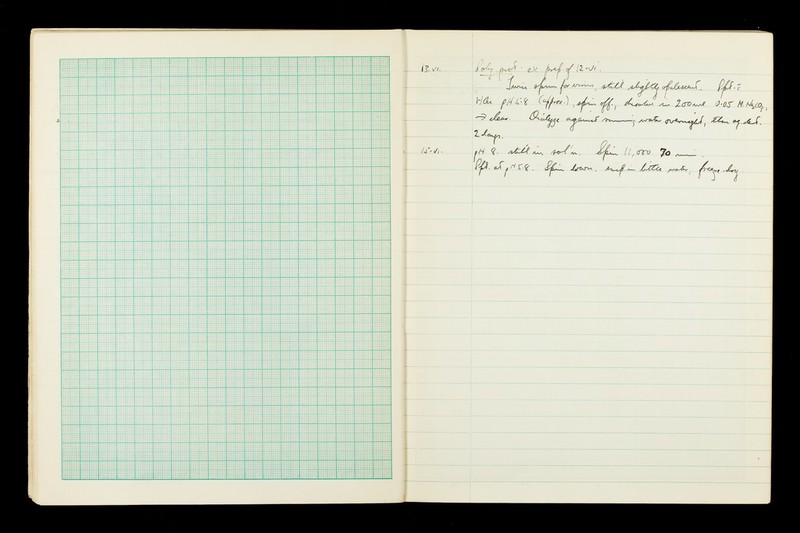 13.vi. prot. ex prep of 12-vi.
Twice spun for 20 mins, still slightly opalescent. Ppt. c̄
HCl pH 5.8 (approx.), spin off, dissolve in 200 ml 0.05 M
→ clear. Dialyse against running water overnight, then ag. dist.
2 days.
15.vi. pH 8. still in sol'n. Spin 11,000 70 min.
Ppt. at pH 5.8. Spin down, susp in little water, freeze-dry